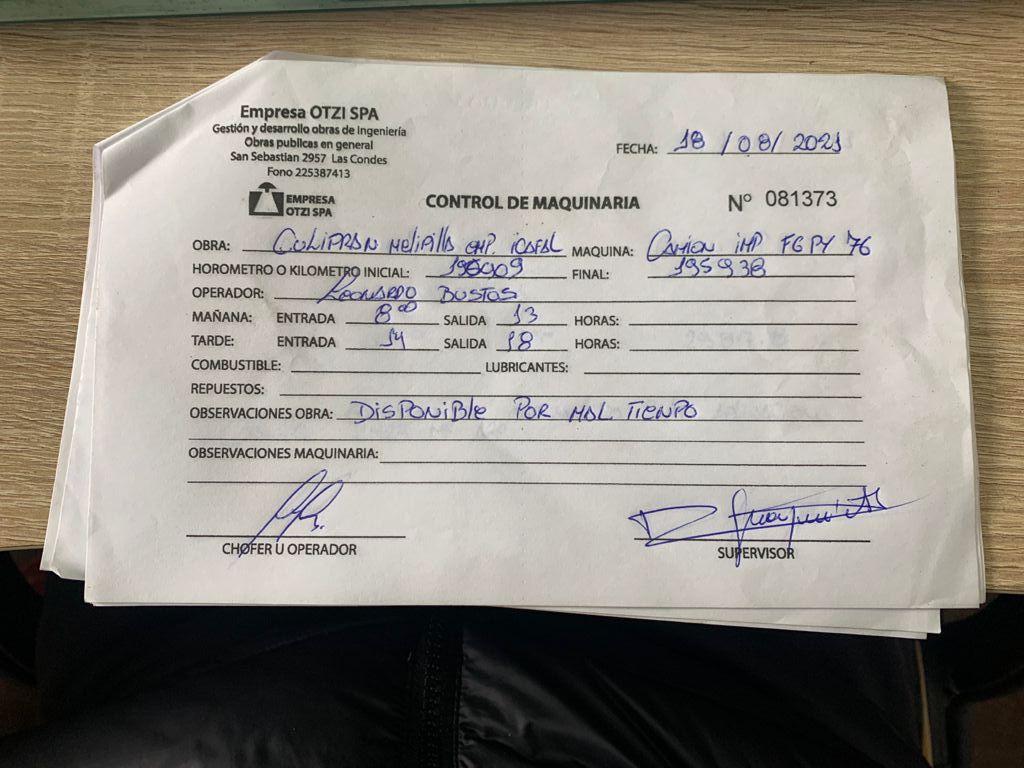 Empresa OTZI SPA
Gestión y desarrollo obras de Ingeniería
Obras publicas en general
San Sebastian 2957 Las Condes
Fono 225387413
FECHA: 18 / 08 / 2021
EMPRESA
OTZI SPA
CONTROL DE MAQUINARIA
Nº 081373
OBRA: CULIPRAN MELIPILLA EMP. ICAFAL MAQUINA: CAMION IMP FGPY 76
HOROMETRO O KILOMETRO INICIAL: FINAL: 195938
OPERADOR: LEONARDO BUSTOS
MAÑANA: ENTRADA 8°° SALIDA 13 HORAS:
TARDE: ENTRADA 14 SALIDA 18 HORAS:
COMBUSTIBLE: LUBRICANTES:
REPUESTOS:
OBSERVACIONES OBRA: DISPONIBLE POR MAL TIENPO
OBSERVACIONES MAQUINARIA:
CHOFER U OPERADOR
SUPERVISOR